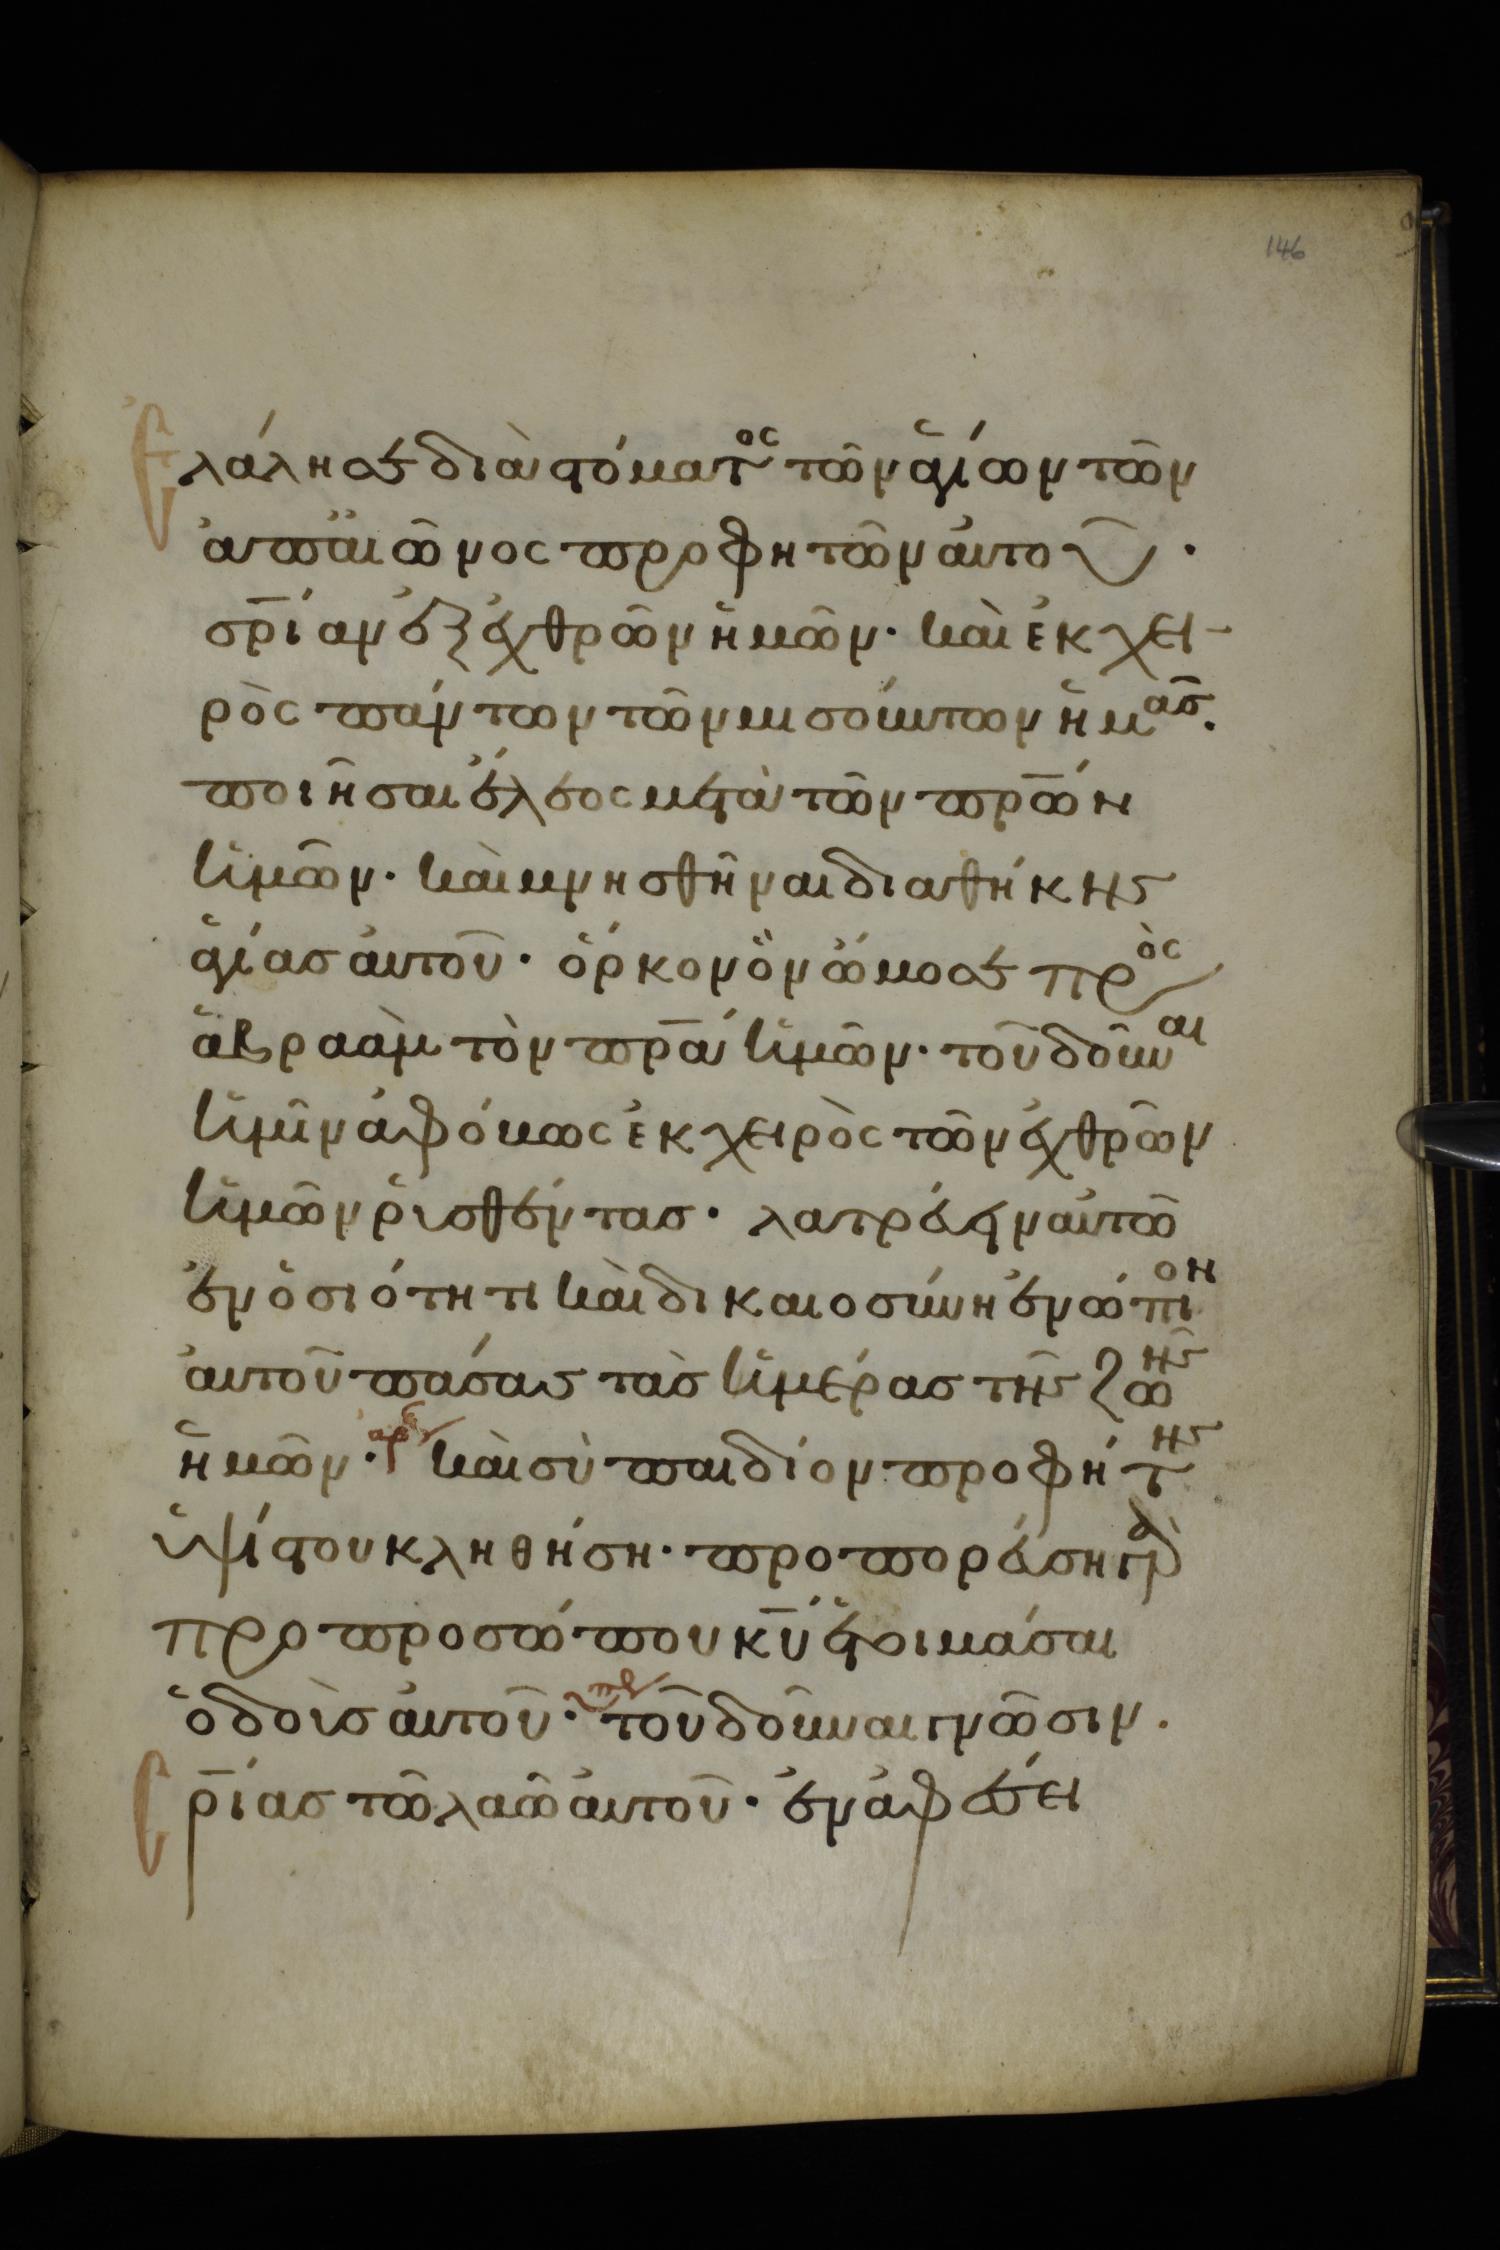 146
ἐλάλησε διὰ στόματος τῶν ἁγίων τῶν
ἀπ' αἰῶνος προφητῶν αὐτοῦ.
σ̅ρ̅ίαν ἐξ ἐχθρῶν ἡμῶν· καὶ ἐκ χει-
ρὸς πάντων τῶν μισούντων ἡμᾶς.
ποιῆσαι ἔλεος μετὰ τῶν π̅ρ̅ων
ἡμῶν· καὶ μνησθῆναι διαθήκης
ἁγίας αὐτοῦ· ὅρκον ὃν ὤμοσε πρὸς
ἀβραὰμ τὸν π̅ρ̅α ἡμῶν· τοῦ δοῦναι
ἡμῖν ἀφόβως ἐκ χειρὸς τῶν ἐχθρῶν
ἡμῶν ῥισθέντας· λατρεύειν αὐτῶ
ἐν ὁσιότητι καὶ δικαιοσύνη ἐνώπιον
αὐτοῦ πάσας τὰς ἡμέρας τῆς ζωῆς
ἡμῶν· καὶ σὺ παιδίον προφήτης
ὑψίστου κληθήση· προπορεύση γὰρ
προ προσώπου κ̅υ̅ ἑτοιμάσαι
ὁδοὺς αὐτοῦ· τοῦ δοῦναι γνῶσιν.
σ̅ρ̅ίας τῶ λαῶ αὐτοῦ· ἐν ἀφέσει